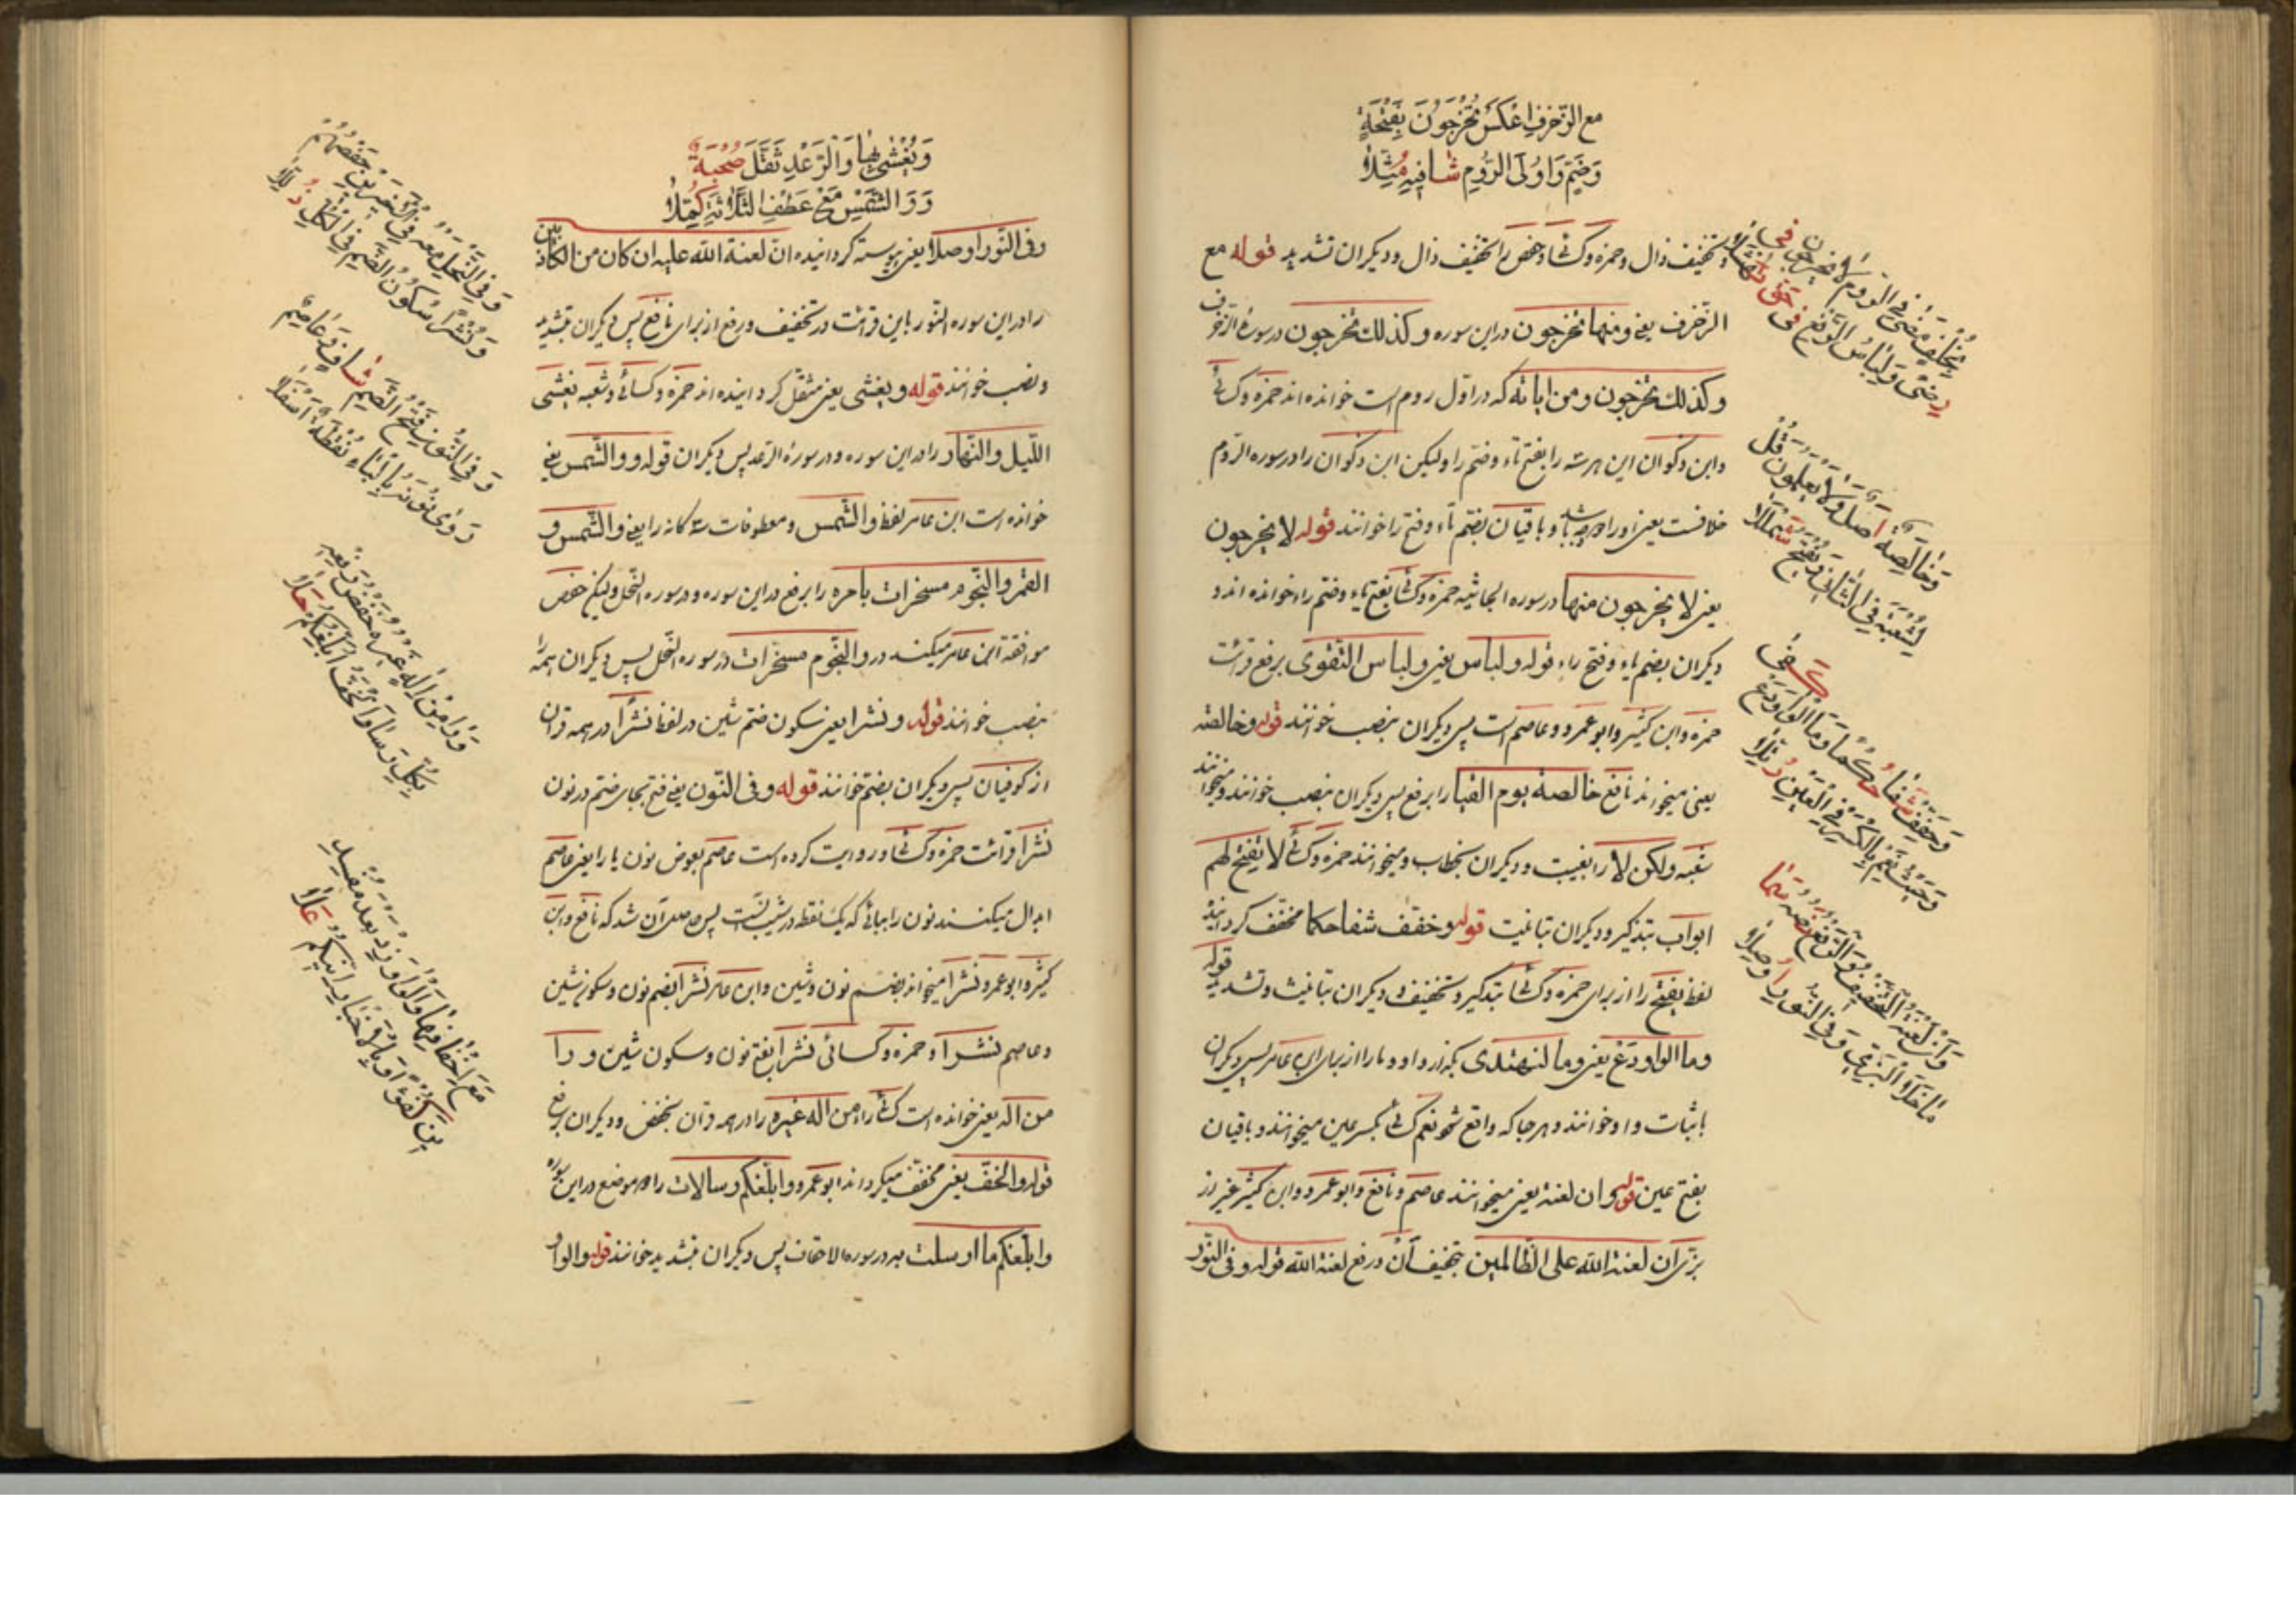 مع الزخرف اعكس تخرجون بفتحة
وضم واولى الروم شافيه مثلا
وتخفيف ذال وحمزه وكسائى وحفص را تخفيف ذال وديكران تشديد قوله مع
الزخرف يعنى ومنها تخرجون دراين سوره وكذلك تخرجون در سورة الزخرف
وكذلك تخرجون ومن اياته كه در اول روم است خوانده اند حمزه وكسائى
وابن ذكوان اين هرسه را بفتح تاء وضم را وليكن ابن ذكوان را در سوره الروم
خلافست يعنى او را وجهين باشد وباقيان بضم تاء وفتح را خوانند قوله لا يخرجون
يعنى لا يخرجون منها در سوره الجاثيه حمزه وكسائى بفتح ياء وضم راء خوانده اند و
ديكران بضم ياء وفتح راء قوله ولباس يعنى ولباس التقوى برفع قرائت
حمزه وابن كثير وابوعمرو وعاصم است پس ديكران بنصب خوانند قوله وخالصه
يعنى ميخواند نافع خالصة يوم القيمة را برفع پس ديكران بنصب خوانند وميخوانند
شعبه ولكن لا را بغيبت وديكران بخطاب وميخوانند حمزه وكسائى لا يفتح لهم
ابواب بتذكير وديكران بتانيث قوله وخفف شفا حكما مخفف كردانيد
لفظ يفتح را از براى حمزه وكسائى بتذكير وتخفيف وديكران بتانيث وتشديد قوله
وما الواو دع يعنى وما لنهتدى بگذار واو وما را از براى ابن عامر پس ديكران
باثبات واو خوانند وهرجا كه واقع شود نعم كسائى بكسر عين ميخوانند وباقيان
بفتح عين قوله وان لعنة يعنى ميخوانند عاصم ونافع وابوعمرو وابن كثير غير از
بزى ان لعنة الله على الظالمين بتخفيف ان ورفع لعنة الله قوله وفى النور
بخلف مضى فى الروم لا يخرجون فى
رضى ولباس الرفع فى حق نهشلا
وخالصة اصل ولا يعلمون قل
لشعبة فى الثانى ويفتح شمللا
وخفف شفا حكما وما الواو دع كفى
وحيث نعم بالكسر فى العين رتلا
وان لعنة التخفيف والرفع نصه سما
ما خلا البزى وفى النور اوصلا
ويغشى بها والرعد ثقل صحبة
ووالشمس مع عطف الثلاثة كملا
وفى النور اوصلا يعنى پيوسته كردانيده ان لعنة الله عليه ان كان من الكاذبين
را در اين سوره النور باين قرائت در تخفيف ورفع از براى نافع پس ديكران بتشديد
ونصب خوانند قوله ويغشى يعنى مثقل كردانيده اند حمزه وكسائى وشعبه يغشى
الليل والنهار را در اين سوره ودر سورة الرعد پس ديكران قوله ووالشمس يعنى
خوانده است ابن عامر لفظ والشمس ومعطوفات سه كانه را يعنى والشمس و
القمر والنجوم مسخرات بامره را برفع در اين سوره ودر سوره النحل وليكن حفص
موافقة ابن عامر ميكند در والنجوم مسخرات در سوره النحل پس ديكران همه را
بنصب خوانند قوله ونشرا يعنى سكون ضم شين در لفظ نشرا در همه قران
از كوفيان پس ديكران بضم خوانند قوله وفى النون يعنى فتح بجاى ضم در نون
نشرا قرائت حمزه وكسائى ورد وايت كرده است عاصم بعوض نون با را يعنى عاصم
ابدال ميكنند نون را ببائى كه يك نقطه در شيب است پس حاصل آن شد كه نافع وابن
كثير وابوعمرو نشرا ميخواند بضم نون وشين وابن عامر نشرا بضم نون وسكون شين
وعاصم بشرا وحمزه وكسائى نشرا بفتح نون وسكون شين ورا
من اله يعنى خوانده است كسائى را من اله غيره را در همه قرآن بخفض وديكران برفع
قوله والخف يعنى مخفف ميكرداند ابوعمرو وابلغكم رسالات را در دو موضع در اين سوره
وابلغكم ما ارسلت به در سوره الاحقاف پس ديكران بتشديد خوانند قوله والواو
وفى النحل معه فى الاخيرين حفصهم
ونشرا سكون الضم فى الكل ذللا
وفى النون فتح الضم شاف وعاصم
روى نونه بالباء نقطة اسفلا
ورا من اله غيره خفض رفعه
بكل رسا والخف ابلغكم حلا
مع احقافها والواو زد بعد مفسدين
كفؤا وبالاخبار انكم علا